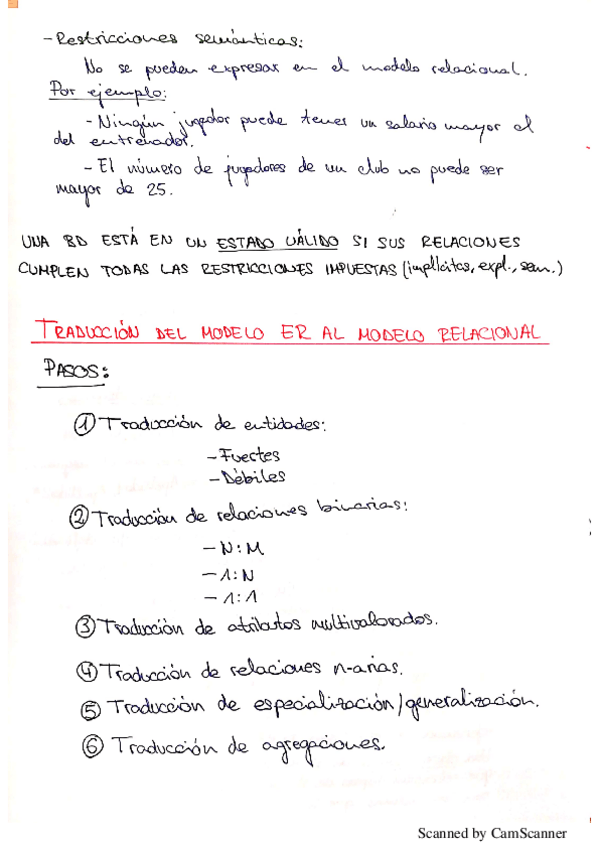 - Restricciones semánticas:
No se pueden expresar en el modelo relacional.
Por ejemplo:
- Ningún jugador puede tener un salario mayor al
del entrenador.
- El número de jugadores de un club no puede ser
mayor de 25.
UNA BD ESTÁ EN UN ESTADO VÁLIDO SI SUS RELACIONES
CUMPLEN TODAS LAS RESTRICCIONES IMPUESTAS (implícitas, expl., sem.)
TRADUCCIÓN DEL MODELO ER AL MODELO RELACIONAL
PASOS:
① Traducción de entidades:
- Fuertes
- Débiles
② Traducción de relaciones binarias:
- N:M
- 1:N
- 1:1
③ Traducción de atributos multivalorados.
④ Traducción de relaciones n-arias.
⑤ Traducción de especialización/generalización.
⑥ Traducción de agregaciones.
Scanned by CamScanner